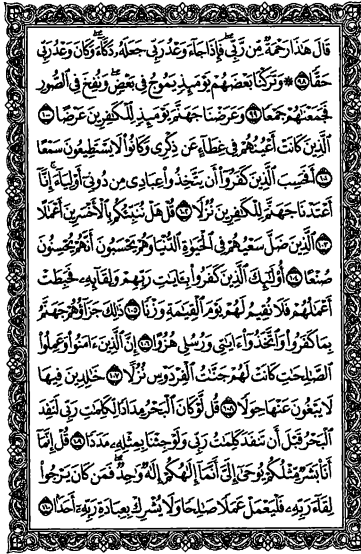 قَالَ هَٰذَا رَحْمَةٌ مِّن رَّبِّي فَإِذَا جَآءَ وَعْدُ رَبِّي جَعَلَهُۥ دَكَّآءَ وَكَانَ وَعْدُ رَبِّي
حَقًّا ٩٨ ۞ وَتَرَكْنَا بَعْضَهُمْ يَوْمَئِذٍ يَمُوجُ فِي بَعْضٍ وَنُفِخَ فِي الصُّورِ
فَجَمَعْنَٰهُمْ جَمْعًا ٩٩ وَعَرَضْنَا جَهَنَّمَ يَوْمَئِذٍ لِّلْكَٰفِرِينَ عَرْضًا ١٠٠
الَّذِينَ كَانَتْ أَعْيُنُهُمْ فِي غِطَآءٍ عَن ذِكْرِي وَكَانُوا۟ لَا يَسْتَطِيعُونَ سَمْعًا
١٠١ أَفَحَسِبَ الَّذِينَ كَفَرُوٓا۟ أَن يَتَّخِذُوا۟ عِبَادِي مِن دُونِيٓ أَوْلِيَآءَ إِنَّآ
أَعْتَدْنَا جَهَنَّمَ لِلْكَٰفِرِينَ نُزُلًا ١٠٢ قُلْ هَلْ نُنَبِّئُكُم بِالْأَخْسَرِينَ أَعْمَٰلًا
١٠٣ الَّذِينَ ضَلَّ سَعْيُهُمْ فِي الْحَيَوٰةِ الدُّنْيَا وَهُمْ يَحْسَبُونَ أَنَّهُمْ يُحْسِنُونَ
صُنْعًا ١٠٤ أُو۟لَٰٓئِكَ الَّذِينَ كَفَرُوا۟ بِـَٔايَٰتِ رَبِّهِمْ وَلِقَآئِهِۦ فَحَبِطَتْ
أَعْمَٰلُهُمْ فَلَا نُقِيمُ لَهُمْ يَوْمَ الْقِيَٰمَةِ وَزْنًا ١٠٥ ذَٰلِكَ جَزَآؤُهُمْ جَهَنَّمُ
بِمَا كَفَرُوا۟ وَاتَّخَذُوٓا۟ ءَايَٰتِي وَرُسُلِي هُزُوًا ١٠٦ إِنَّ الَّذِينَ ءَامَنُوا۟ وَعَمِلُوا۟
الصَّٰلِحَٰتِ كَانَتْ لَهُمْ جَنَّٰتُ الْفِرْدَوْسِ نُزُلًا ١٠٧ خَٰلِدِينَ فِيهَا
لَا يَبْغُونَ عَنْهَا حِوَلًا ١٠٨ قُل لَّوْ كَانَ الْبَحْرُ مِدَادًا لِّكَلِمَٰتِ رَبِّي لَنَفِدَ
الْبَحْرُ قَبْلَ أَن تَنفَدَ كَلِمَٰتُ رَبِّي وَلَوْ جِئْنَا بِمِثْلِهِۦ مَدَدًا ١٠٩ قُلْ إِنَّمَآ
أَنَا۠ بَشَرٌ مِّثْلُكُمْ يُوحَىٰٓ إِلَيَّ أَنَّمَآ إِلَٰهُكُمْ إِلَٰهٌ وَٰحِدٌ فَمَن كَانَ يَرْجُوا۟
لِقَآءَ رَبِّهِۦ فَلْيَعْمَلْ عَمَلًا صَٰلِحًا وَلَا يُشْرِكْ بِعِبَادَةِ رَبِّهِۦٓ أَحَدًۢا ١١٠